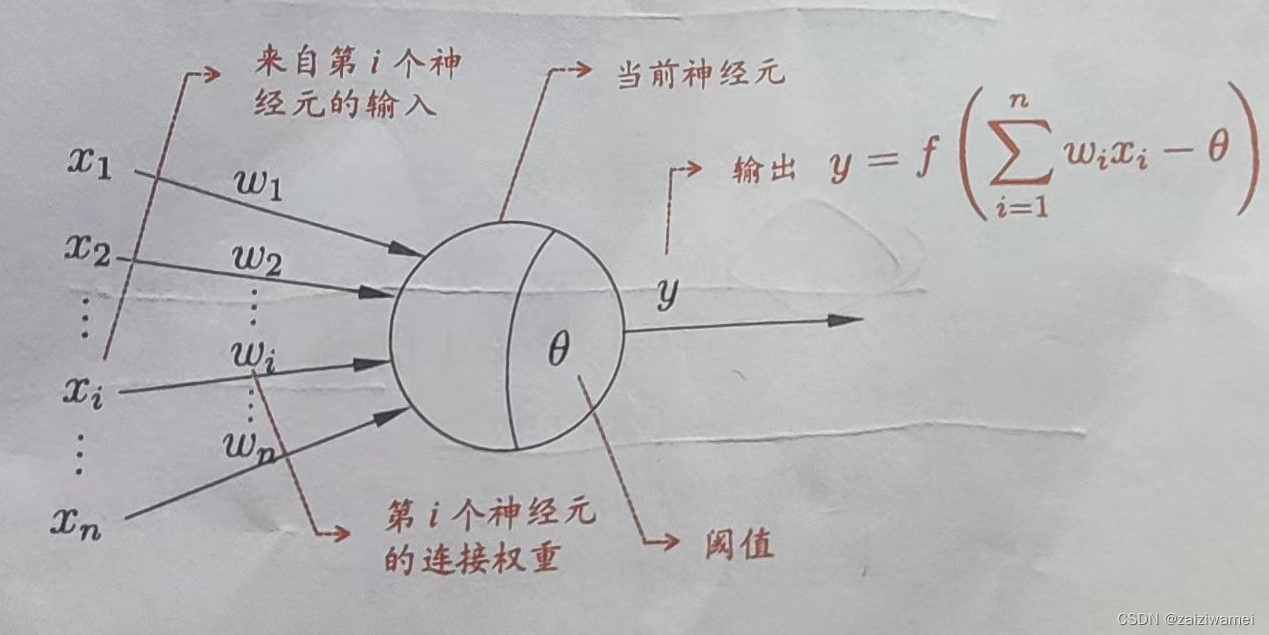 来自第 i 个神
经元的输入
当前神经元
输出 y = f(∑_{i=1}^{n} w_i x_i − θ)
x_1
w_1
x_2
w_2
⋮
⋮
y
θ
x_i
w_i
⋮
⋮
x_n
w_n
第 i 个神经元
的连接权重
阈值
CSDN @zaiziwamei